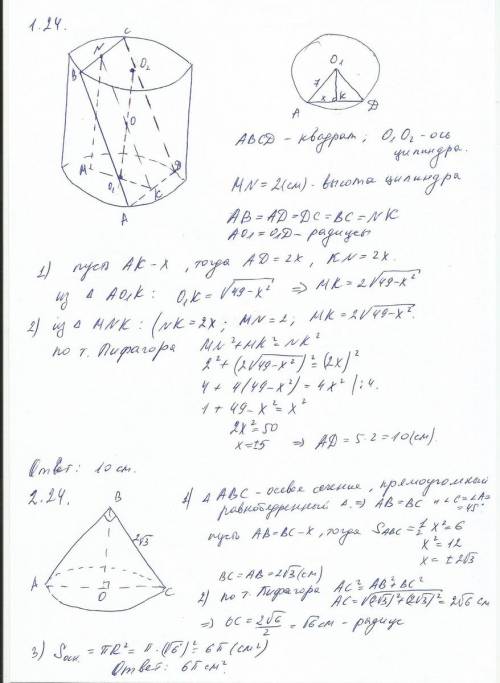 1.24.
C
N
B
O₂
O
M
D
O₁
K
A
O₁
7
x
K
A
D
ABCD - квадрат; O₁O₂ - ось
цилиндра.
MN = 2(см) - высота цилиндра
AB = AD = DC = BC = NK
AO₁ = O₁D - радиусы
1) пусть AK - x, тогда AD = 2x, KN = 2x.
из △ AO₁K: O₁K = √49-x² ⇒ MK = 2√49-x²
2) из △ MNK: (NK = 2x; MN = 2; MK = 2√49-x².
по т. Пифагора MN² + MK² = NK²
2² + (2√49-x²)² = (2x)²
4 + 4(49-x²) = 4x² |:4.
1 + 49 - x² = x²
2x² = 50
x = ±5 ⇒ AD = 5·2 = 10(см).
Ответ: 10 см.
2.24.
B
2√3
A
O
C
1) △ ABC - осевое сечение, прямоугольный
равнобедренный △. ⇒ AB = BC и ∠C = ∠A = 45°
пусть AB = BC - x, тогда S_ABC = ½ x² = 6
x² = 12
x = ±2√3
BC = AB = 2√3 (см)
2) по т. Пифагора AC² = AB² + BC²
AC = √(2√3)² + (2√3)² = 2√6 см
⇒ OC = 2√6/2 = √6 см - радиус
3) Sосн. = πR² = π·(√6)² = 6π (см²)
Ответ: 6π см².